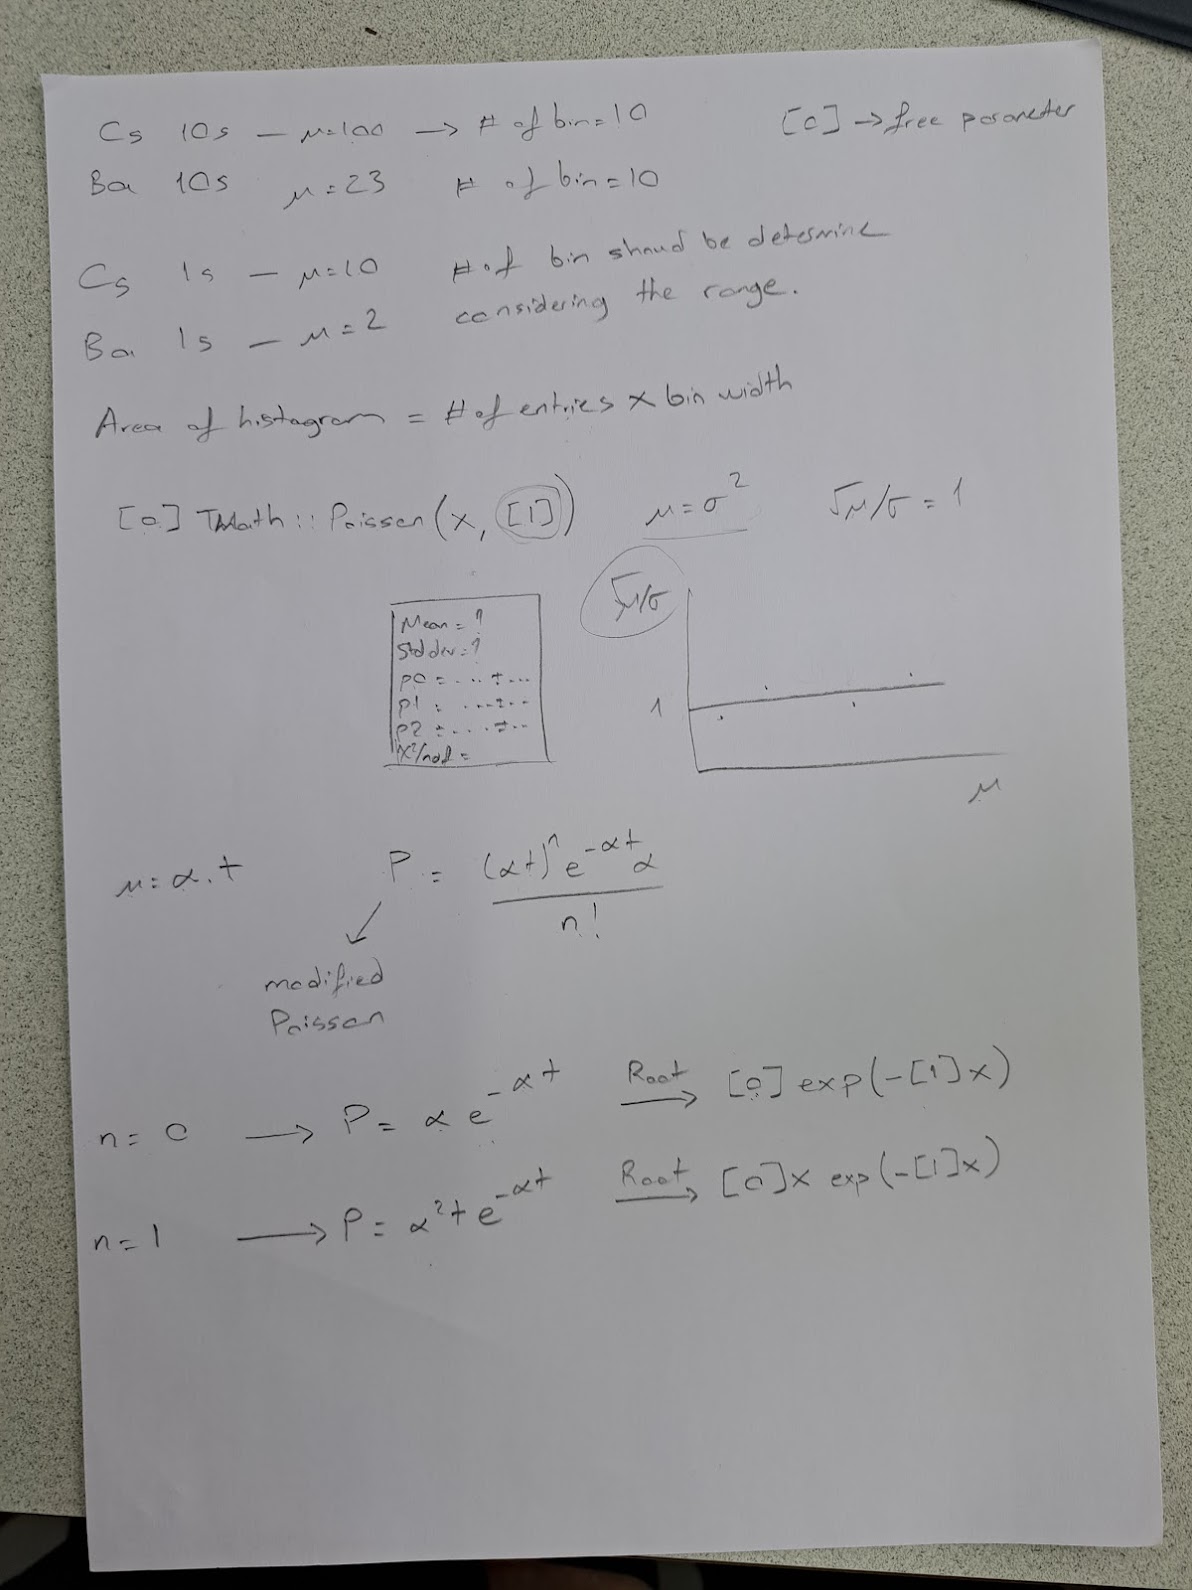 Cs 10s – μ=100 → # of bin=10
[0] → free parameter
Ba 10s μ=23 # of bin=10
Cs 1s – μ=10 # of bin shoud be determine
considering the range.
Ba 1s – μ=2
Area of histogram = # of entries x bin width
[0] TMath::Poisson(x, [1]) μ=σ² √μ/σ = 1
√μ/σ
Mean = ?
Std dev = ?
p0 = ... ± ...
p1 = ... ± ...
p2 = ... ± ...
X²/ndf =
1
μ
μ=α.t P = (αt)ⁿ e^-αt α / n!
modified
Poisson
n=0 → P= α e^-αt Root → [0] exp(-[1]x)
n=1 → P= α²t e^-αt Root → [0]x exp(-[1]x)